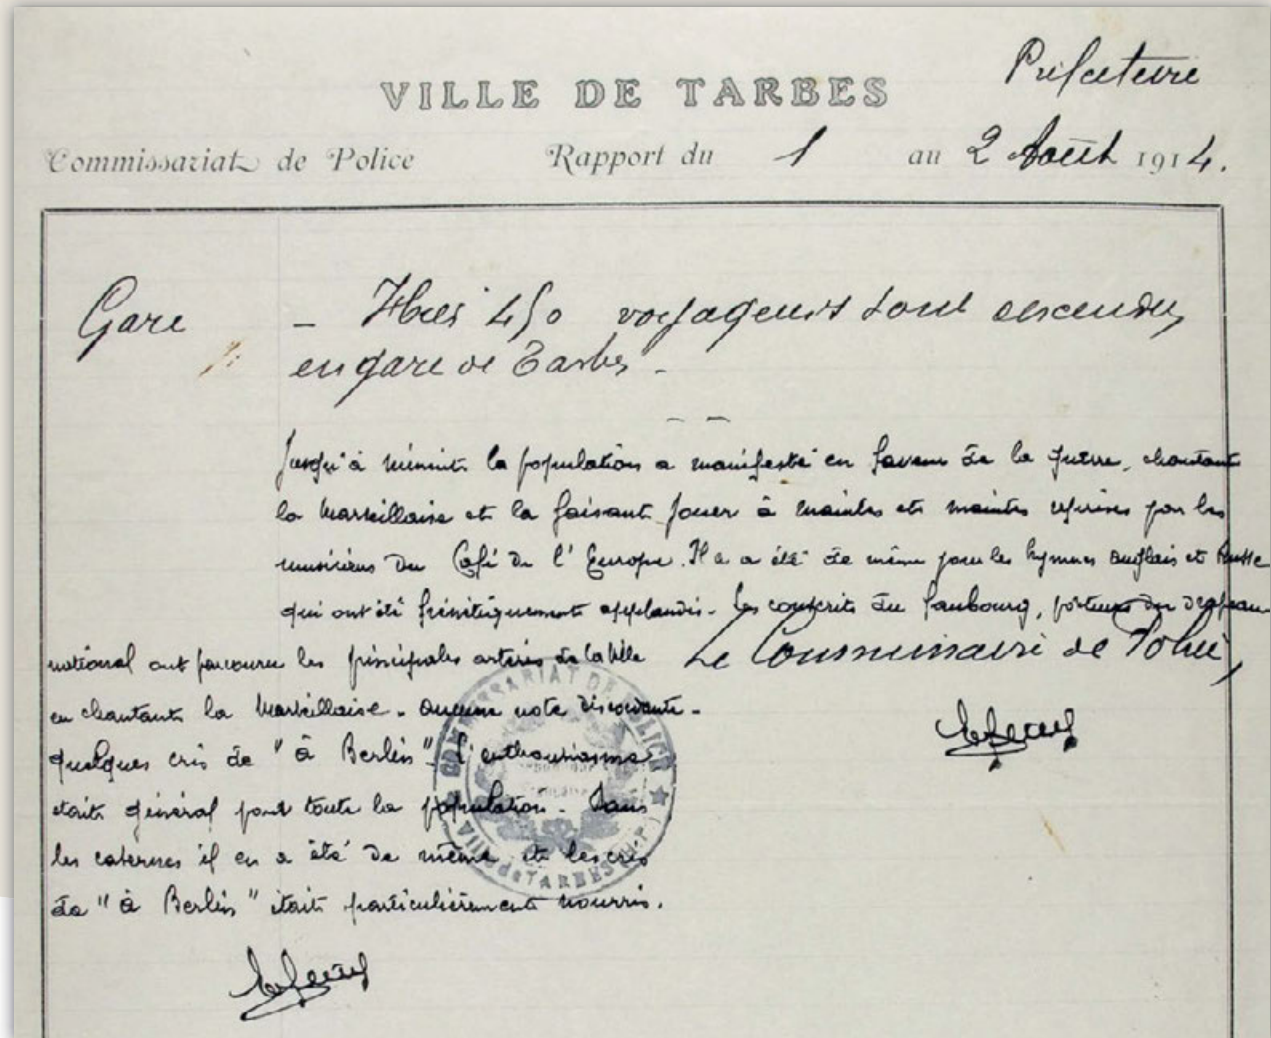 Préfecture
VILLE DE TARBES
Commissariat de Police Rapport du 1 au 2 Août 1914.
Gare — 450 voyageurs sont descendus
en gare de Tarbes —
Jusqu'à minuit la population a manifesté en faveur de la guerre, chantant
la Marseillaise et la faisant jouer à maintes et maintes reprises par les
musiciens du Café de l'Europe. Il a été de même pour les hymnes anglais et Russe
qui ont été frénétiquement applaudis. Les conscrits du faubourg, porteurs du drapeau
national ont parcouru les principales artères de la Ville
en chantant la Marseillaise. aucune note discordante.
quelques cris de "à Berlin". L'enthousiasme
était général pour toute la population. Dans
les casernes il en a été de même et les cris
de "à Berlin" était particulièrement nourris.
Le Commissaire de Police,
COMMISSARIAT DE POLICE
VILLE de TARBES (H.P.)